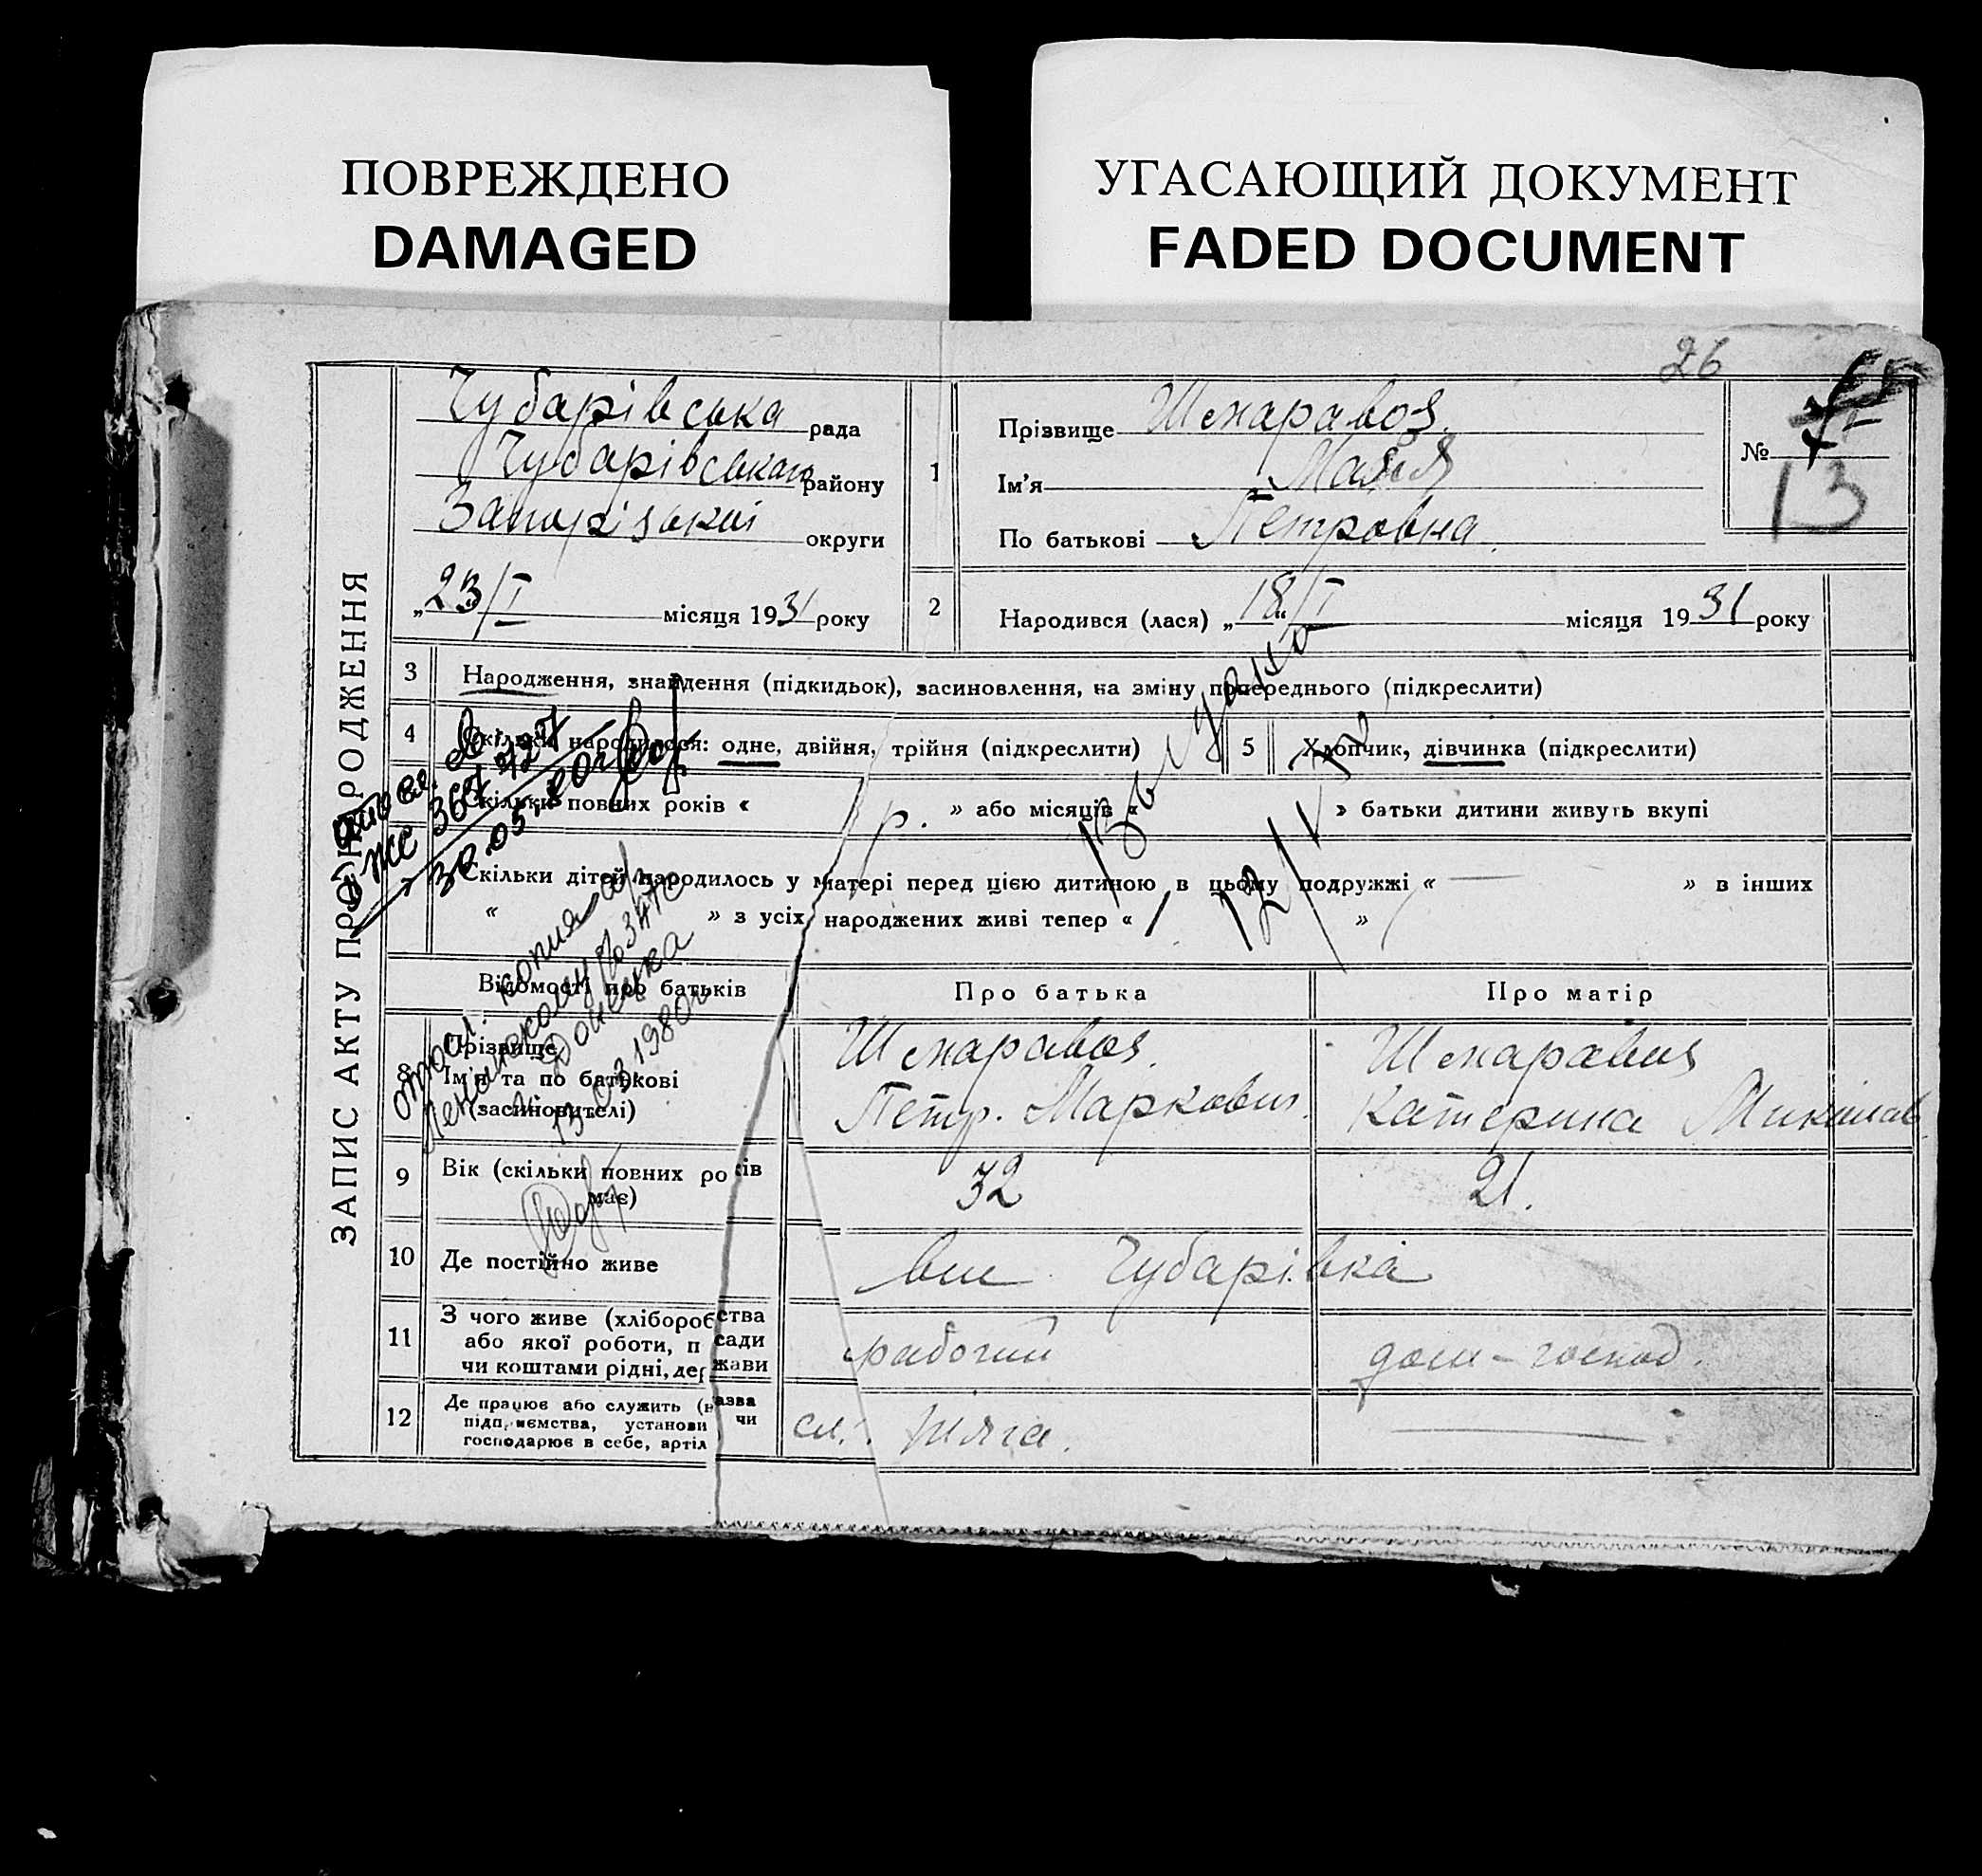 ПОВРЕЖДЕНО
DAMAGED
УГАСАЮЩИЙ ДОКУМЕНТ
FADED DOCUMENT
26
ЗАПИС АКТУ ПРО НАРОДЖЕННЯ
Чубарівська рада
Чубарівського району
Запорізької округи
„23/I місяця 1931 року
1
Прізвище
Ім’я Майя
По батькові Петровна
№
13
2 Народився (лася) „18“/I місяця 1931 року
3 Народження, знайдення (підкидьок), засиновлення, на зміну попереднього (підкреслити)
4 Скільки народилося: одне, двійня, трійня (підкреслити)
5 Хлопчик, дівчинка (підкреслити)
Скільки повних років « р. » або місяців « » батьки дитини живуть вкупі
Скільки дітей народилось у матері перед цією дитиною в цьому подружжі « — » в інших
« » з усіх народжених живі тепер « »
30.05.
копия а/з
Донецка
13.03.1980г
Відомості про батьків
Про батька
Про матір
8 Прізвище
Ім’я та по батькові
(засиновителі)
Петр. Маркович
Катерина
9 Вік (скільки повних років має)
32
21.
10 Де постійно живе
Чубарівка
11 З чого живе (хліборобства
або якої роботи, посади
чи коштами рідні, держави
рабочий
дом-господ.
12 Де працює або служить (назва
підприємства, установи чи
господарює в себе, артіл
сл. тяга.